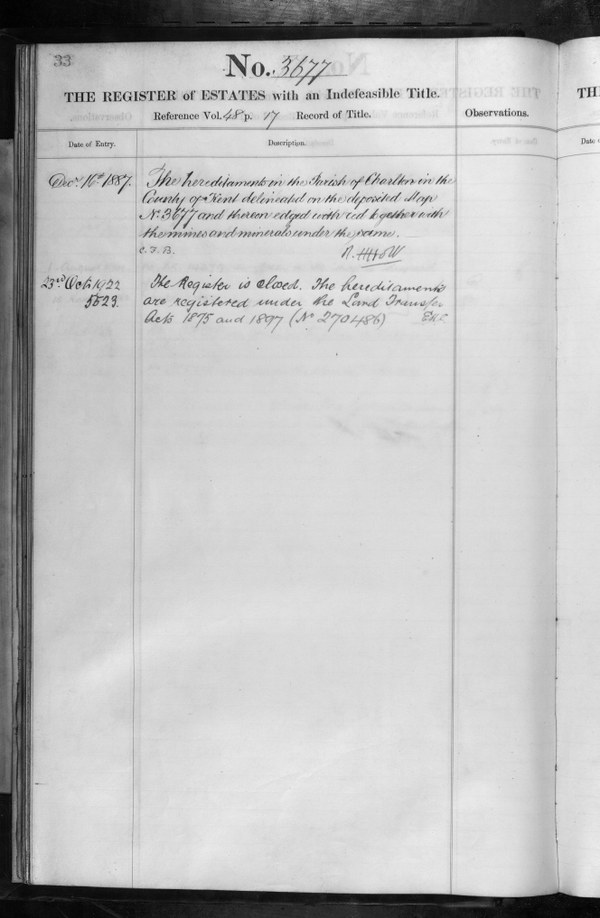 33
No. 3677
THE REGISTER of ESTATES with an Indefeasible Title.
Reference Vol. 48 p. 17 Record of Title.
Observations.
Date of Entry.
Description.
Decr. 16th 1887.
The hereditaments in the Parish of Charlton in the
County of Kent delineated on the deposited Map
No. 3677 and thereon edged with red together with
the mines and minerals under the same.
C. F. B.
23rd Oct. 1922
5629.
The Register is closed. The hereditaments
are registered under the Land Transfer
Acts 1875 and 1897 (No 270486)
TH
Date